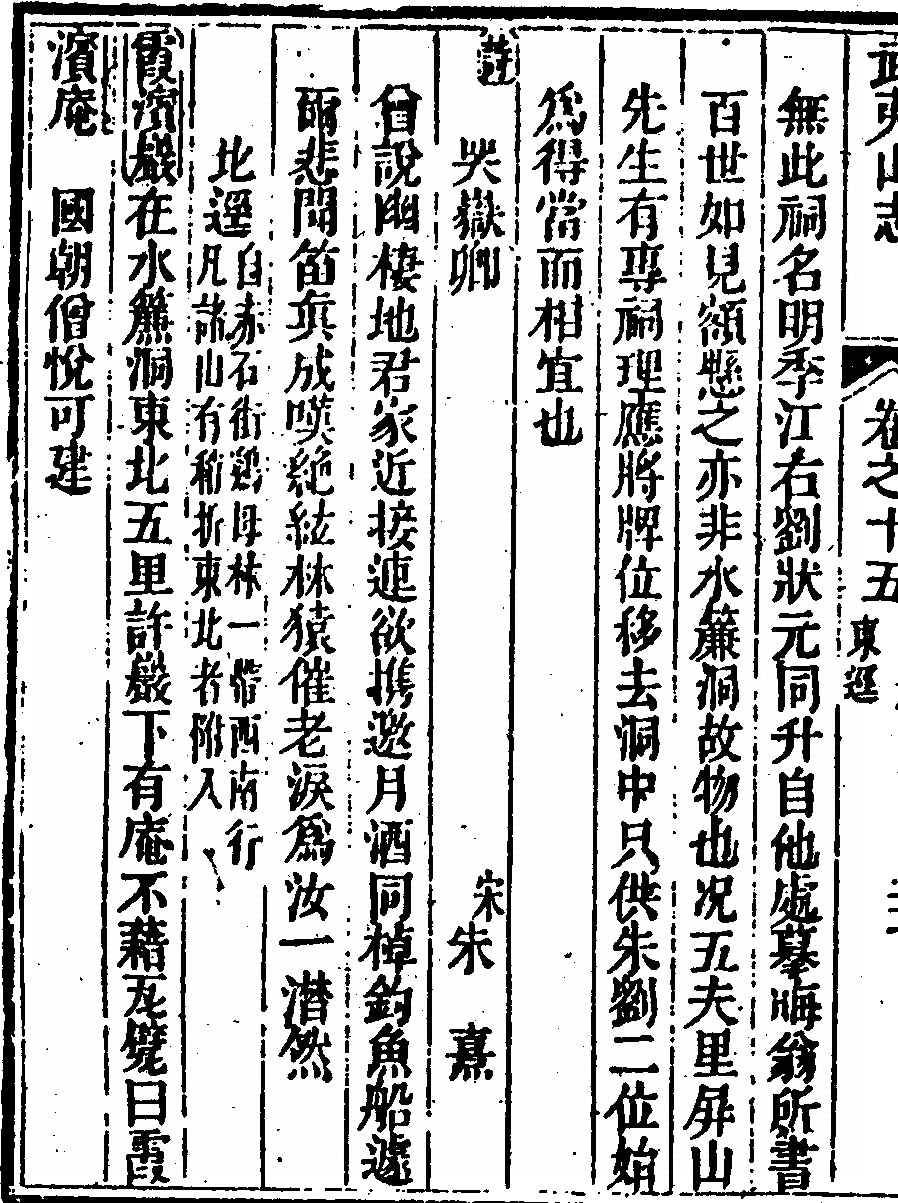 武夷山志 卷之十五 東逕
無此祠名明季江右劉狀元同升自他處摹晦翁所書
百世如見額懸之亦非水簾洞故物也况五夫里屏山
先生有專祠理應將牌位移去洞中只供朱劉二位始
爲得當而相宜也
詩
哭嶽卿 宋朱熹
曾說幽棲地君家近接連欲携邀月酒同棹釣魚船遽
爾悲聞笛眞成嘆絶絃林猿催老淚爲汝一潸然
北逕
自赤石街鷄母林一帶西南行
凡諸山有稍折東北者附入
霞濱巖在水簾洞東北五里許巖下有庵不藉瓦甓曰霞
濱庵 國朝僧悅可建